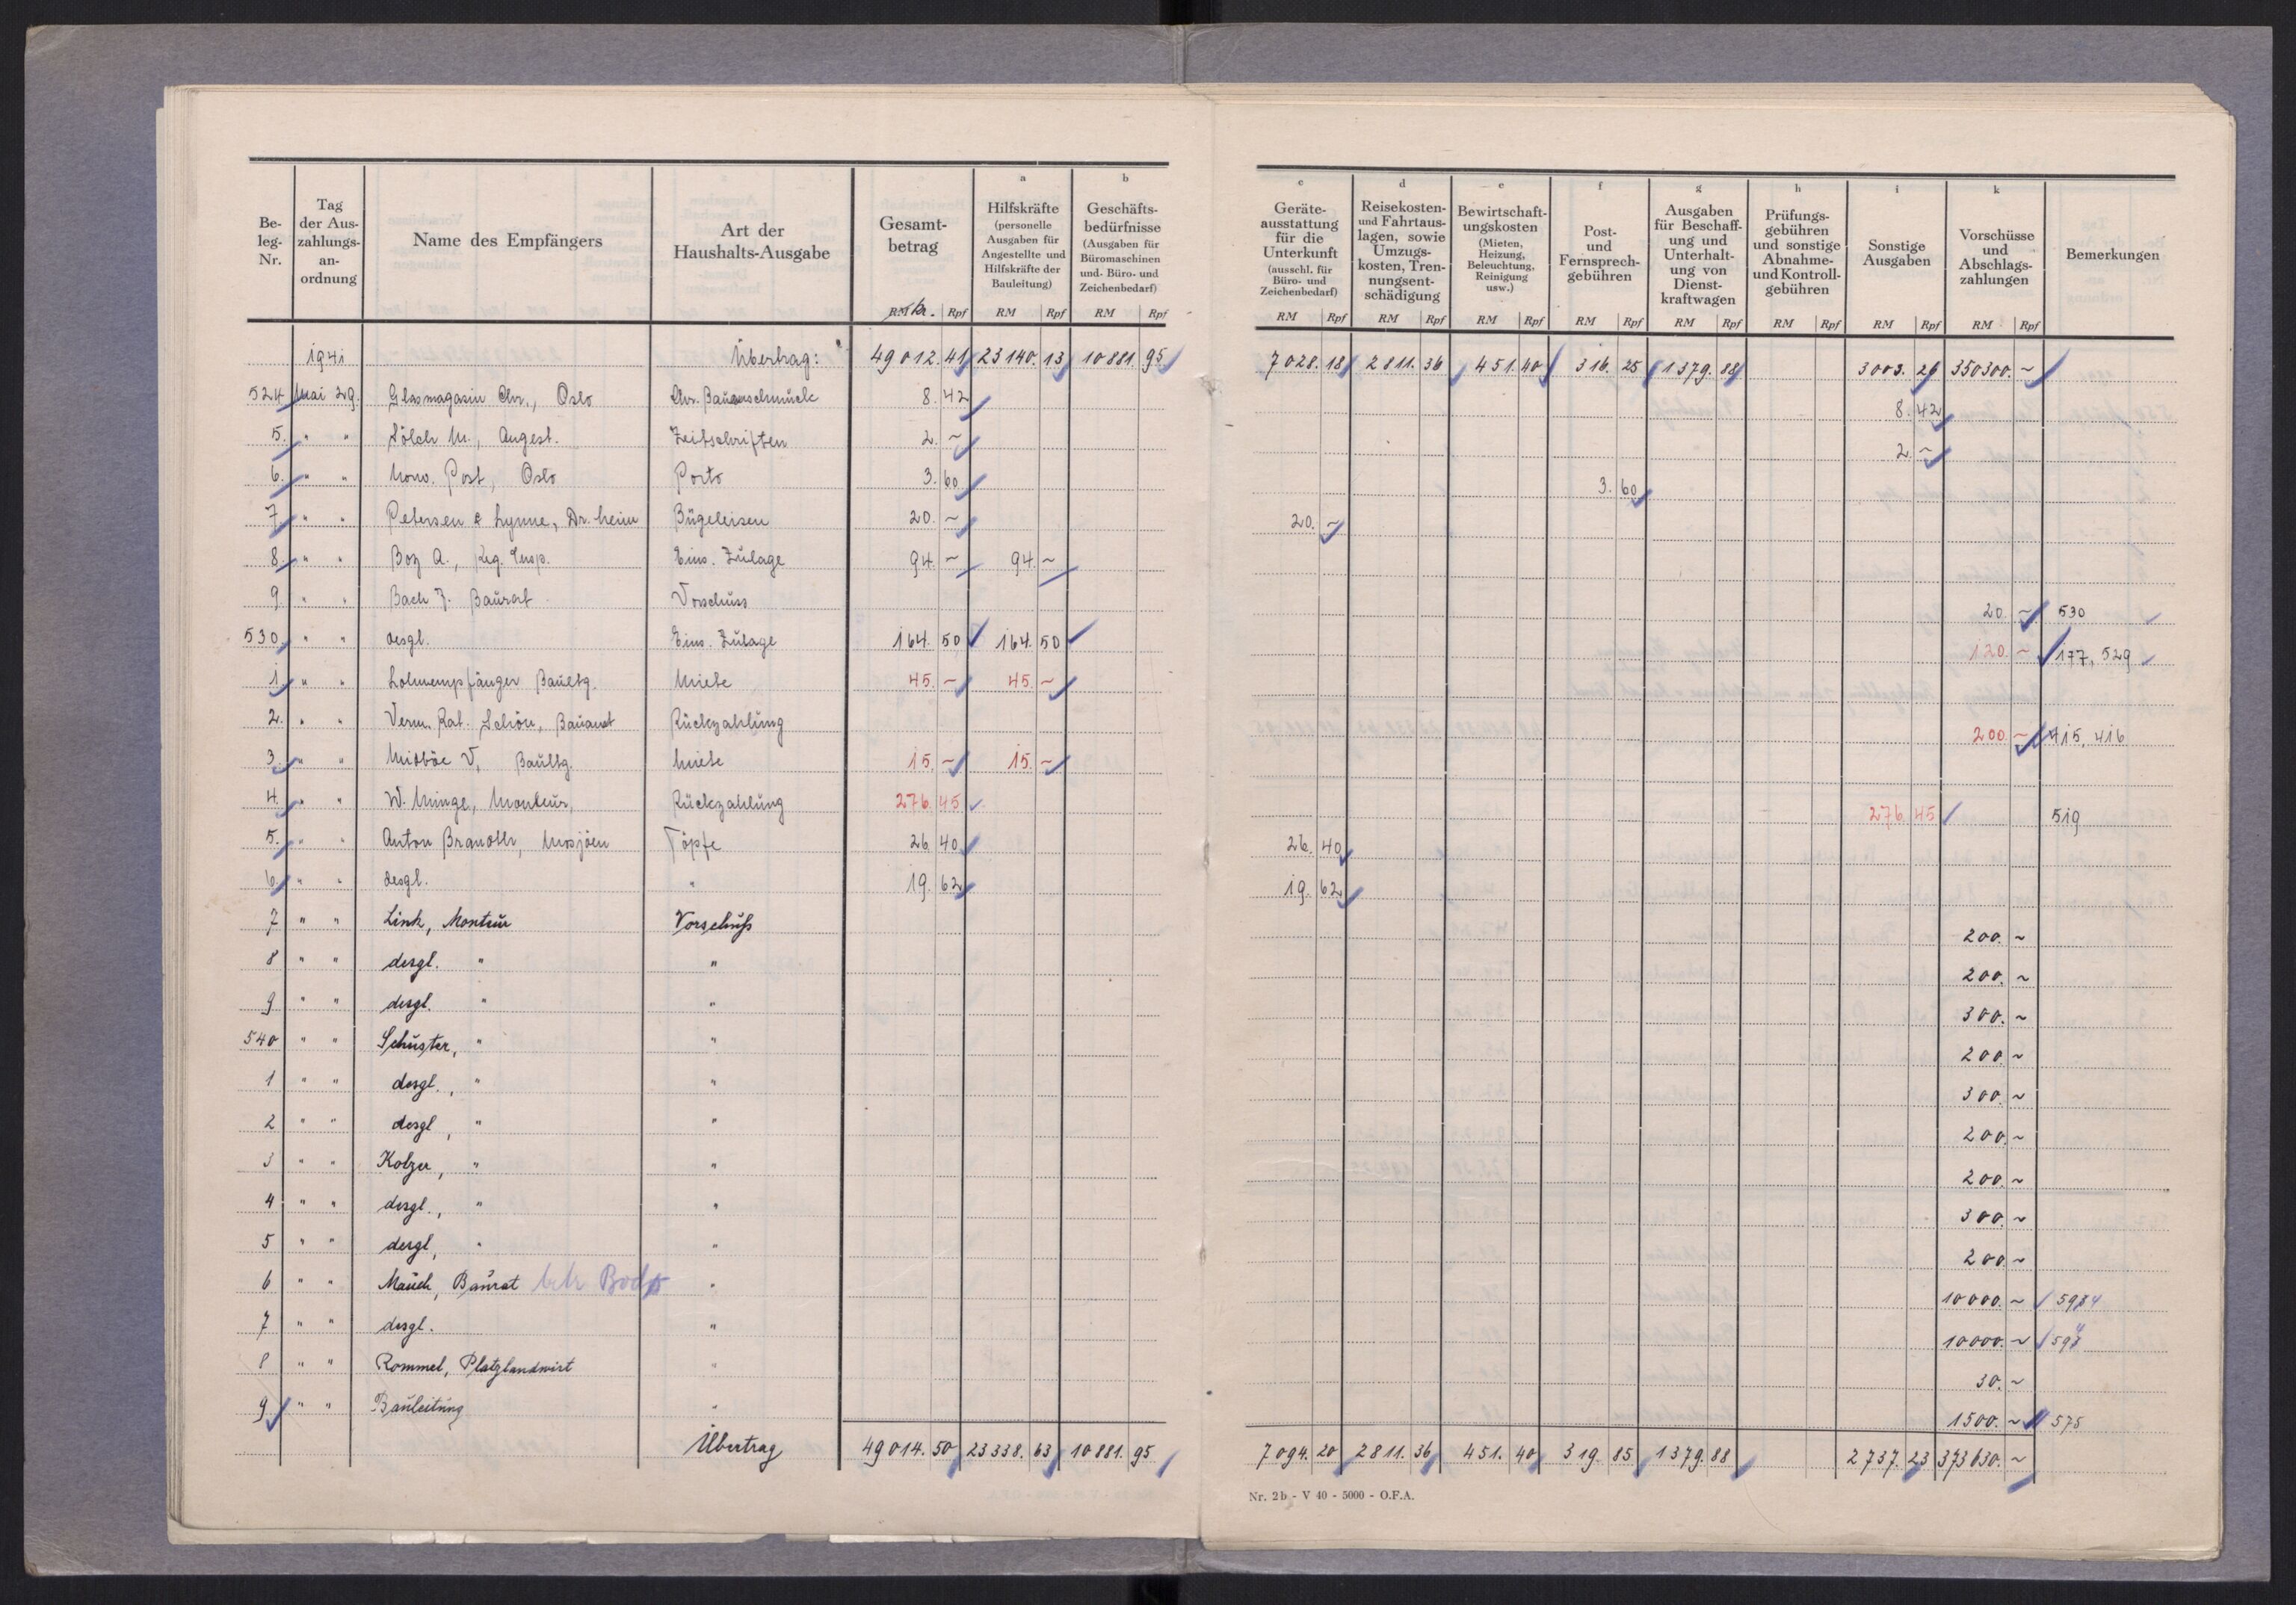 Be-
leg-
Nr.
Tag
der Aus-
zahlungs-
an-
ordnung
Name des Empfängers
Art der
Haushalts-Ausgabe
Gesamt-
betrag
RM kr. Rpf
a
Hilfskräfte
(personelle
Ausgaben für
Angestellte und
Hilfskräfte der
Bauleitung)
RM Rpf
b
Geschäfts-
bedürfnisse
(Ausgaben für
Büromaschinen
und- Büro- und
Zeichenbedarf)
RM Rpf
c
Geräte-
ausstattung
für die
Unterkunft
(ausschl. für
Büro- und
Zeichenbedarf)
RM Rpf
d
Reisekosten-
und Fahrtaus-
lagen, sowie
Umzugs-
kosten, Tren-
nungsent-
schädigung
RM Rpf
e
Bewirtschaft-
ungskosten
(Mieten,
Heizung,
Beleuchtung,
Reinigung
usw.)
RM Rpf
f
Post-
und
Fernsprech-
gebühren
RM Rpf
g
Ausgaben
für Beschaff-
ung und
Unterhalt-
ung von
Dienst-
kraftwagen
RM Rpf
h
Prüfungs-
gebühren
und sonstige
Abnahme-
und Kontroll-
gebühren
RM Rpf
i
Sonstige
Ausgaben
RM Rpf
k
Vorschüsse
und
Abschlags-
zahlungen
RM Rpf
Bemerkungen
1941 Übertrag: 49012.41 23140.13 10881.95 7028.18 2811.36 451.40 316.25 1379.88 3003.26 350300.~
524 Mai 29. Glasmagasin Chr., Oslo 8.42 8.42
5. " " Sölch M., Angest. Zeitschriften 2.~ 2.~
6. " " Norw. Post, Oslo Porto 3.60 3.60
7. " " Petersen & Lynne, Dr. heim Bügeleisen 20.~ 20.~
8. " " Boz A., Reg. Insp. Eins. Zulage 94.~ 94.~
9. " " Bach J. Baurat Vorschuss 20.~ 530
530. " " desgl. Eins. Zulage 164.50 164.50 120.~ 177, 529
1. " " Lohnempfänger Baultg. Miete 45.~ 45.~
2. " " Verm. Rat. Schön, Bauamt Rückzahlung 200.~ 415, 416
3. " " Midböe V, Baultg. Miete 15.~ 15.~
4. " " W. Minge, Monteur, Rückzahlung 276.45 276.45 519
5. " " Anton Brandth, Mosjöen Töpfe 26.40 26.40
6. " " desgl. " 19.62 19.62
7 " " Link, Monteur Vorschuß 200.~
8 " " desgl. " " 200.~
9 " " desgl. " " 300.~
540 " " Schuster, " " 200.~
1 " " desgl., " " 300.~
2 " " desgl, " " 200.~
3 " " Kolzer, " " 200.~
4 " " desgl., " " 300.~
5 " " desgl, " " 200.~
6 " " Mauch, Baurat Bodø " 10000.~
7 " " desgl. " 10000.~
8 " " Rommel, Platzlandwirt " 30.~
9 " " Bauleitung " 1500.~ 575
Übertrag 49014.50 23338.63 10881.95 7094.20 2811.36 451.40 319.85 1379.88 2737.23 373630.~
Nr. 2b - V 40 - 5000 - O.F.A.